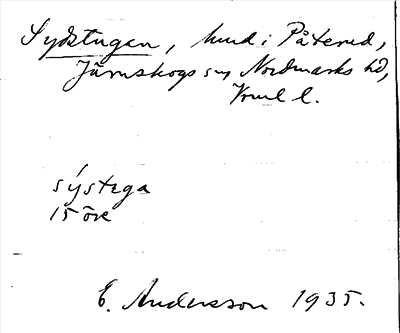 Sydstugan, hmd i Påterud,
Järnskogs sn Nordmarks hd,
Vrml l.
sýstega
15 öre
E. Andersson 1935.